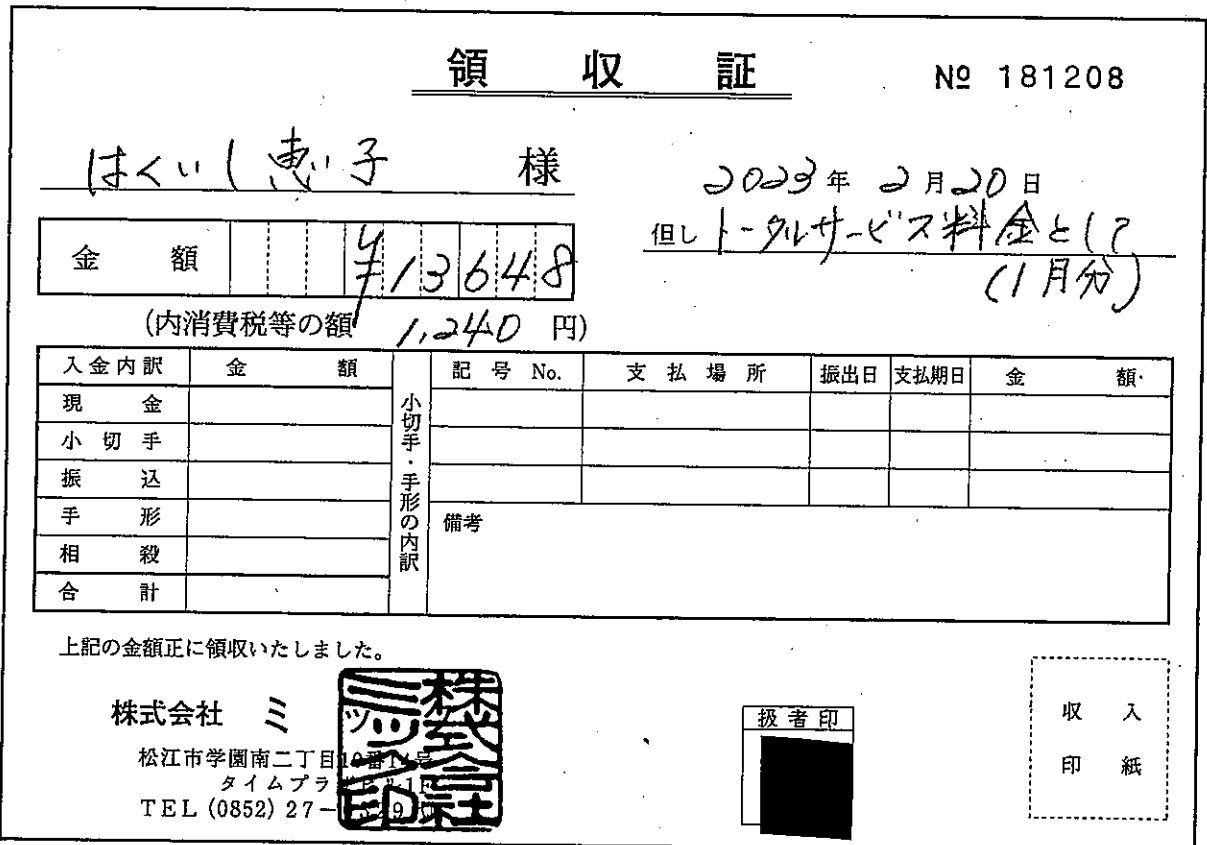 領収証
№ 181208
はくいし恵子 様
2023年 2月20日
但し トータルサービス料金として
(1月分)
金額 ¥13648
(内消費税等の額 1,240 円)
入金内訳 金額 小切手・手形の内訳 記号No. 支払場所 振出日 支払期日 金額
現金
小切手
振込
手形
備考
相殺
合計
上記の金額正に領収いたしました。
株式会社 ミ
松江市学園南二丁目
タイムプラ
TEL (0852) 27-
扱者印
収入
印紙